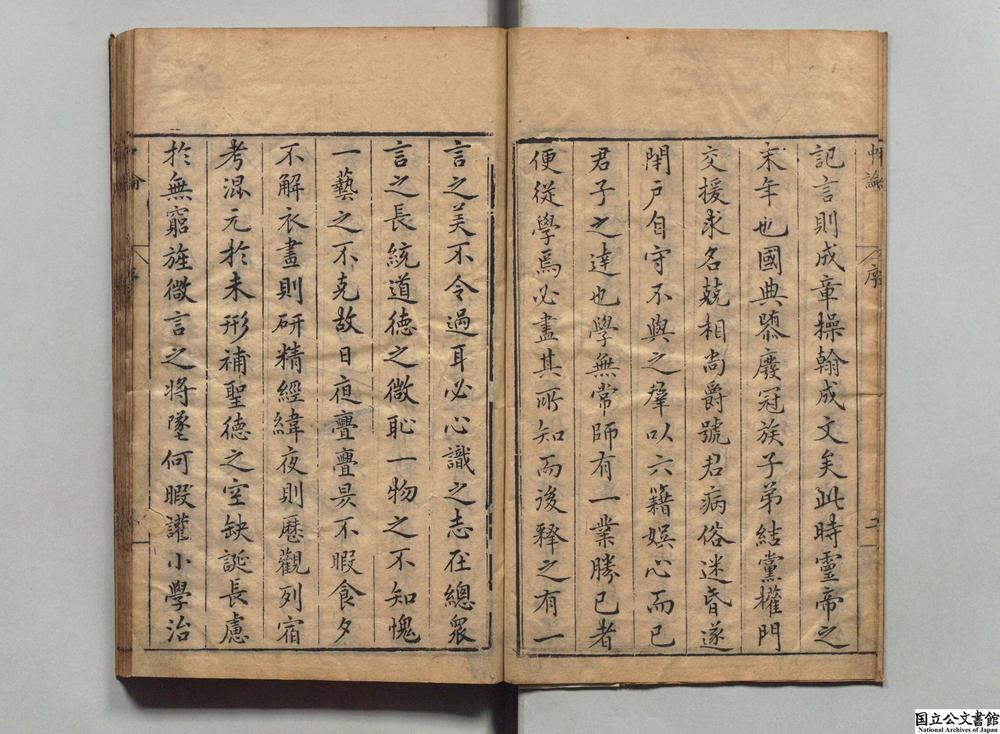 中論
序
二
記言則成章操翰成文矣此時靈帝之
末年也國典隳廢冠族子弟結黨權門
交援求名競相尚爵號君病俗迷昏遂
閉户自守不與之羣以六籍娯心而已
君子之達也學無常師有一業勝己者
便從學焉必盡其所知而後釋之有一
言之美不令過耳必心識之志在總衆
言之長統道德之微恥一物之不知愧
一藝之不克故日夜亹亹昃不暇食夕
不解衣晝則研精經緯夜則歷觀列宿
考混元於未形補聖德之空缺誕長慮
於無窮旌微言之將墜何暇讙小學治
国立公文書館
National Archives of Japan